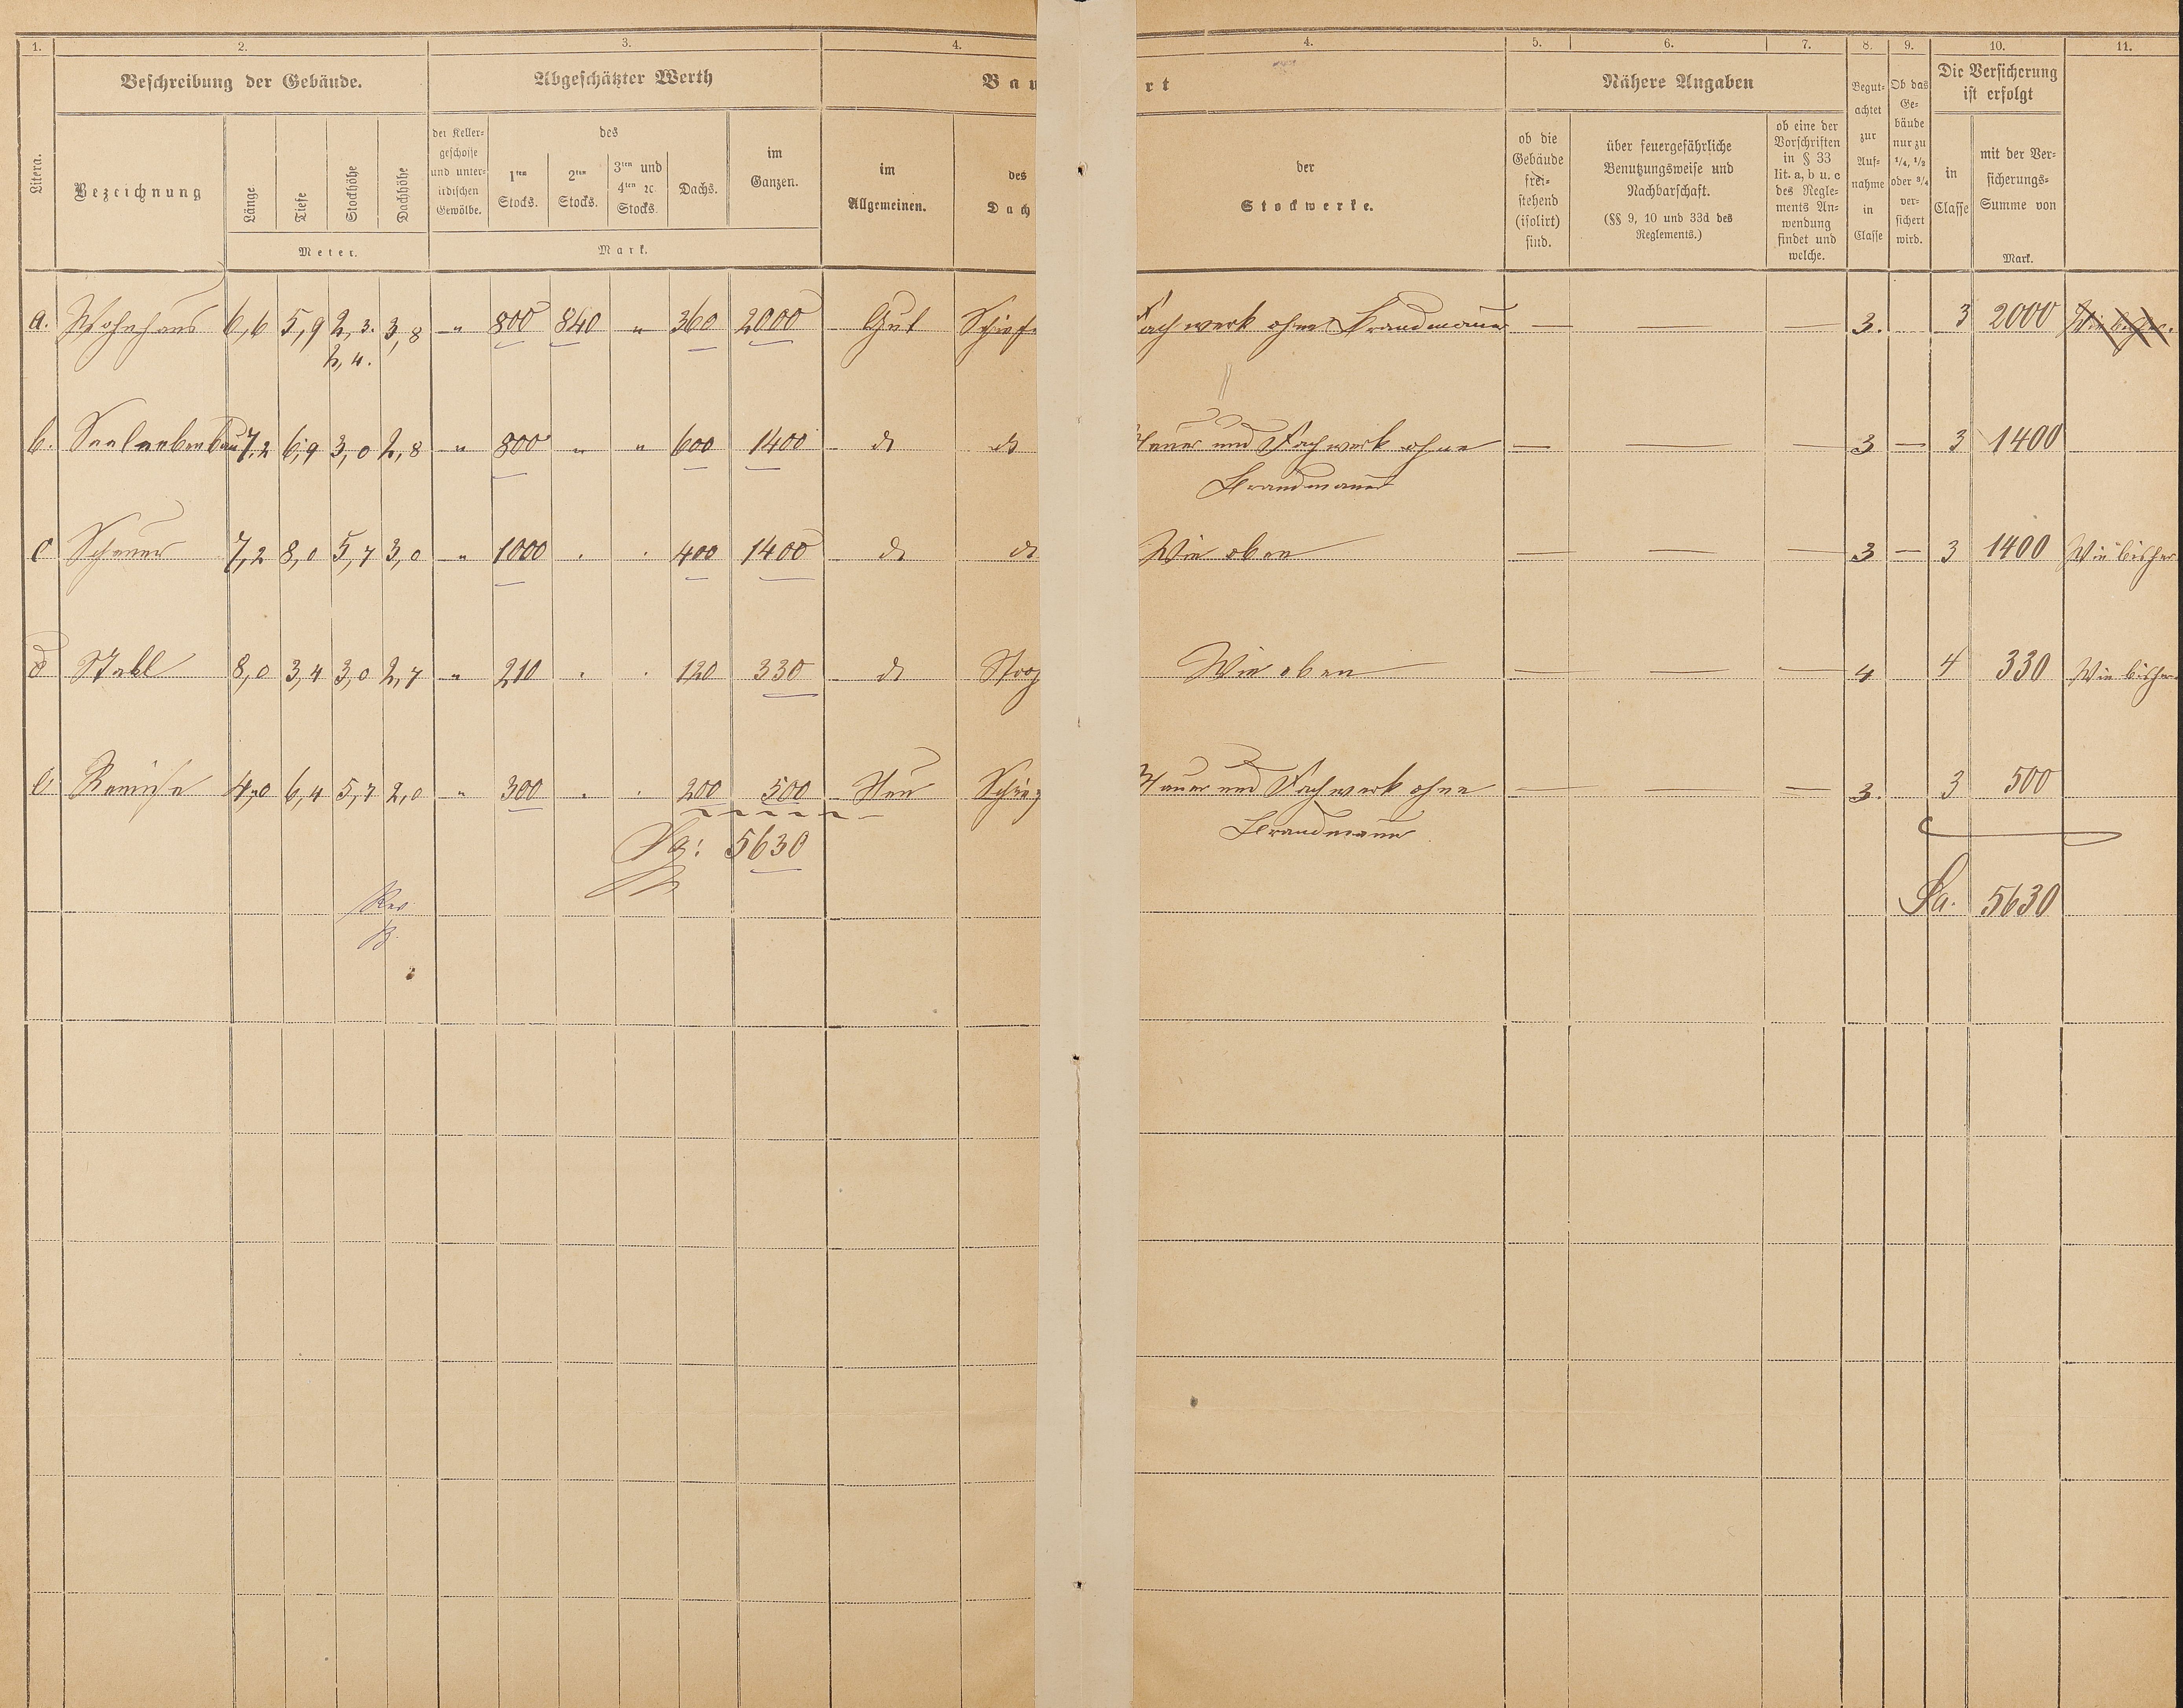 1. 2. 3. 4. 4. 5. 6. 7. 8. 9. 10. 11.
Beschreibung der Gebäude. Abgeschätzter Werth Bau rt Nähere Angaben
Die Versicherung
ist erfolgt
Litera.
Bezeichnung
Länge
Tiefe
Stockhöhe
Dachhöhe
Meter.
der Keller-
geschosse
und unter-
irdischen
Gewölbe.
des
1ten
Stocks.
2ten
Stocks.
3ten und
4ten ꝛc.
Stocks.
Dachs.
im
Ganzen.
Mark.
im
Allgemeinen.
des
Dach
der
Stockwerke.
ob die
Gebäude
frei-
stehend
(isolirt)
sind.
über feuergefährliche
Benutzungsweise und
Nachbarschaft.
(§§ 9, 10 und 33d des
Reglements.)
ob eine der
Vorschriften
in § 33
lit. a, b u. c
des Regle-
ments An-
wendung
findet und
welche.
Begut-
achtet
zur
Auf-
nahme
in
Classe
Ob das
Ge-
bäude
nur zu
1/4, 1/2
oder 3/4
ver-
sichert
wird.
in
Classe
mit der Ver-
sicherungs-
Summe von
Mark.
a. Wohnhaus 6,6 5,9 2,3. 3,8 " 800 840 " 360 2000 Gut Schief Fachwerk ohne Brandmauer — — — 3. 3 2000 Wie bisher.
2,4.
b. 7,2 6,9 3,0 2,8 " 800 " " 600 1400 do do Mauer und Fachwerk ohne — — — 3 — 3 1400
Brandmauer
c Scheuer 7,2 8,0 5,7 3,0 " 1000 . . 400 1400 do do Wie oben — — — 3 — 3 1400 Wie bisher
d Stall 8,0 3,4 3,0 2,7 " 210 . . 120 330 do Stroh Wie oben — — — 4 4 330 Wie bisher
e Remise 4,0 6,4 5,7 2,0 " 300 . . 200 500 Neu Schief Mauer und Fachwerk ohne — — — 3. 3 500
Brandmauer
Sa: 5630
Rev.
Sa. 5630